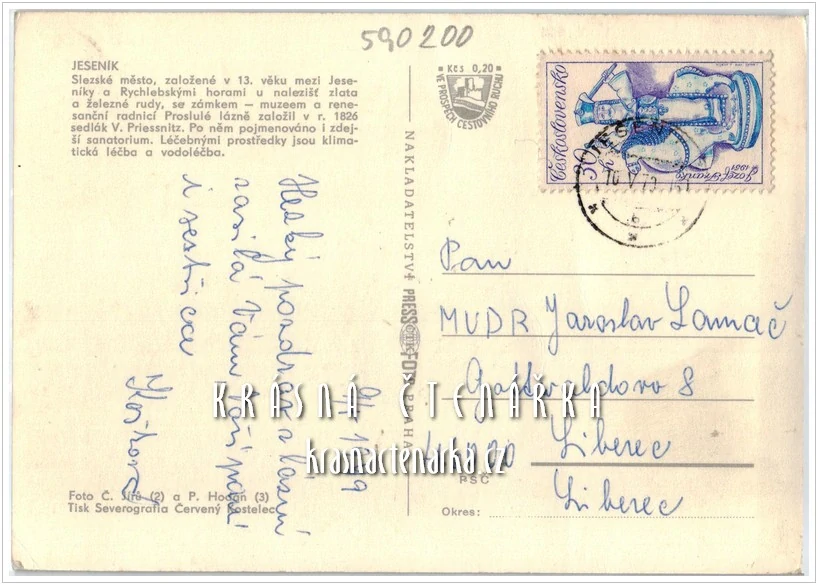 590200
JESENÍK
Slezské město, založené v 13. věku mezi Jese-
níky a Rychlebskými horami u nalezišť zlata
a železné rudy, se zámkem — muzeem a rene-
sanční radnicí Proslulé lázně založil v r. 1826
sedlák V. Priessnitz. Po něm pojmenováno i zdej-
ší sanatorium. Léčebnými prostředky jsou klima-
tická léčba a vodoléčba.
Kčs 0,20
VE PROSPĚCH CESTOVNÍHO RUCHU
Československo
30 h
1961
JESENÍK
10.V.
NAKLADATELSTVÍ PRESSFOTO PRAHA
Hezký pozdrav z lázní
zasílá Vám Vaší paní
i sestřičce
Pan
MUDR Jaroslav Lamač
Gottwaldova 8
Liberec
PSČ
Liberec
Okres:
KRÁSNÁ ČTENÁŘKA
krasnactenarka.cz
Foto Č. Jírů (2) a P. Hodan (3)
Tisk Severografia Červený Kostelec